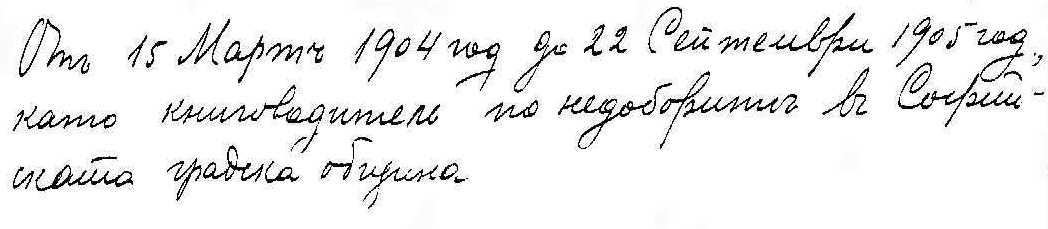 Отъ 15 Мартъ 1904 год до 22 Септември 1905 год,
като книговодитель по недоборитѣ въ Софий-
ската градска община